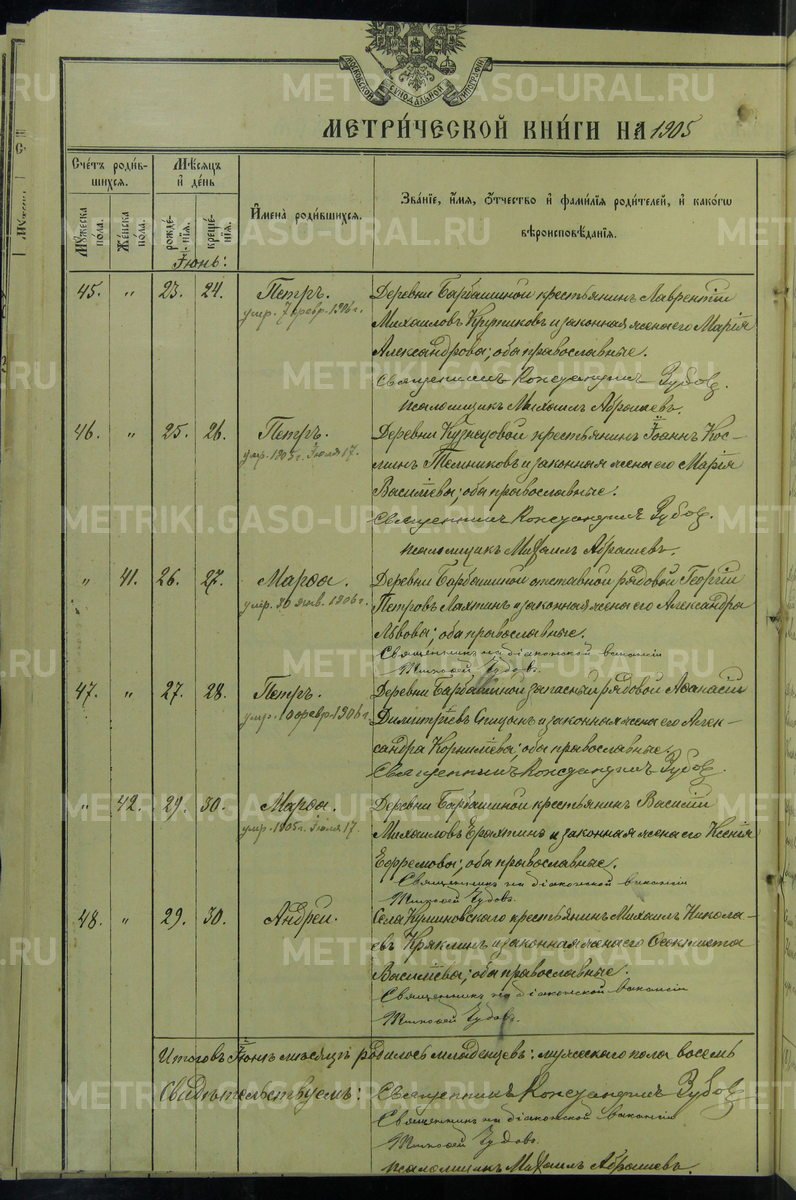 МОСКОВСКОЙ СѴНОДАЛЬНОЙ ТИПОГРАФІИ
МЕТРИ́ЧЕСКОЙ КНИ́ГИ НА 1905
Сче́тъ роди́в-
шихся.
Мѣ́сяцъ
и де́нь
Имена̀ роди́вшихся.
Зва́ніе, и́мя, о́тчество и фами́лія роди́телей, и како́гѡ
вѣроисповѣ́данія.
Му́жеска по́ла.
Же́нска по́ла.
рожде́нія.
креще́нія.
Іюнь:
45. " 23. 24. Петръ. Деревни Барбашиной крестьянинъ Лаврентій
умр. 7 февр. 1906 г. Михайловъ Крутиковъ и законная жена его Марія
Александрова; оба православные.
Священникъ Константинъ Зубовъ.
псаломщикъ Михаилъ Аброшевъ.
46. " 25. 26. Петръ. Деревни Кузнецовой крестьянинъ Іоаннъ Кос-
умр. 1905 г. Іюля 17. минъ Темниковъ и законная жена его Марія
Василіева; оба православные.
Священникъ Константинъ Зубовъ.
псаломщикъ Михаилъ Аброшевъ.
" 41. 26. 27. Марѳа. Деревни Барбашиной отставной рядовой Георгій
умр. 30 янв. 1906 г. Петровъ Лахтинъ и законная жена его Александра
Львова; оба православные.
Священникъ на діаконской вакансіи
Тимофей Чудовъ.
47. " 27. 28. Петръ. Деревни Барбашиной запасный рядовой Аѳанасій
умр. 10 февр. 1906 г. Димитріевъ Спицынъ и законная жена его Алек-
сандра Корниліева; оба православные.
Священникъ Константинъ Зубовъ.
" 42. 29. 30. Марѳа. Деревни Барбашиной крестьянинъ Василій
умр. 1905 г. Іюля 17. Михайловъ Ерахтинъ и законная жена его Ксенія
Ефремова; оба православные.
Священникъ на діаконской вакансіи
Тимофей Чудовъ.
48. " 29. 30. Андрей. Села Кушновскаго крестьянинъ Михаилъ Никола-
евъ Кряклинъ и законная жена его Ѳеоктиста
Василіева; оба православные.
Священникъ на діаконской вакансіи
Тимофей Чудовъ.
Итого въ Іюнѣ мѣсяцѣ родилось младенцевъ: мужескаго пола восемь
Свидѣтельствуемъ: Священникъ Константинъ Зубовъ
Священникъ на діаконской вакансіи
Тимофей Чудовъ.
псаломщикъ Михаилъ Аброшевъ.
METRIKI.GASO-URAL.RU